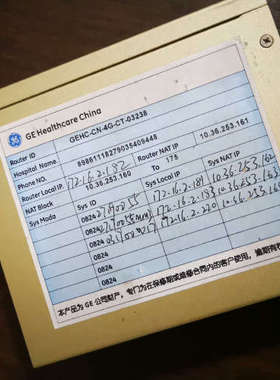 GE Healthcare China
Router ID GEHC-CN-4G-CT-03238
Hospital Name
Phone NO. 89861118279035409448
Router Local IP 172.16.2.182 Router NAT IP 10.36.253.161
NAT Block 10.36.253.160 To 175
Sys Moda Sys ID Sys Local IP Sys NAT IP
0824 172.16.2.181 10.36.253.
0824 172.16.2.183 10.36.253.163
0824 172.16.2.220 10.36.253.
0824
0824
本产品为 GE 公司财产，专门为在保修期或维修合同内的客户使用，逾期有权